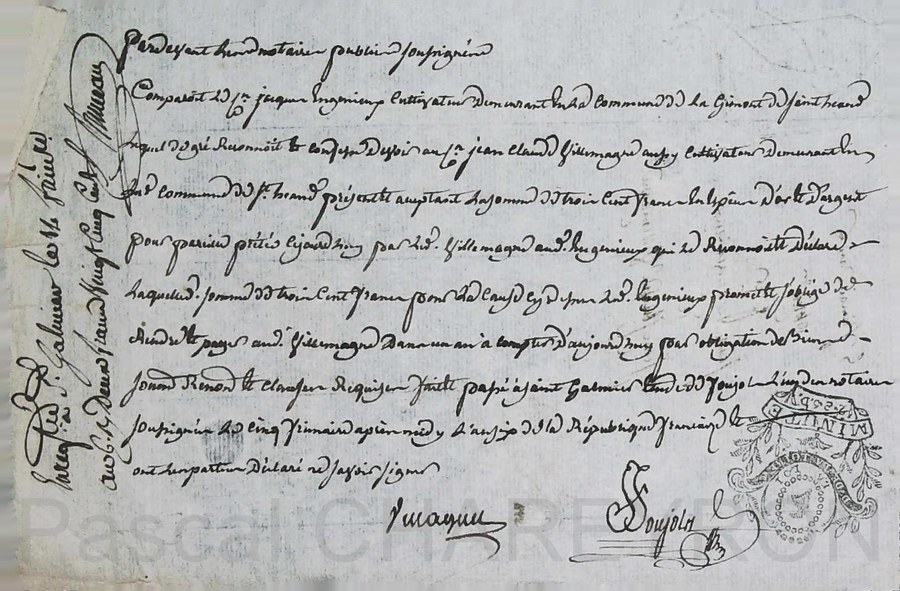 Pardevant les notaires publics soussignés
Comparoit le Cn. jacques Ingenieux Cultivateur demeurant en la Commune de la Gimont de Saint heand
lequel de gré Reconnoit et Confesse devoir au Cn. jean Claude Villemagne aussy Cultivateur demeurant en
lad. Commune de St. heand présent et aceptant la somme de trois Cent francs en Espèces d'or et d'argent
pour pariels prêtés cejourd'huy par led. Villemagne aud. Ingenieux qui le Reconnoit et déclare
laquelle d. somme de trois Cent francs pour la Cause cy dessus led. Ingenieux promet et s'oblige de
Rendre et payer aud. Villemagne dans un an a compter d'aujourd'huy par obligation de biens
soumis Renoncé et Clauses Requises fait et passé a saint Galmier Etude de Soujol l'un des notaires
soussignés le Cinq frimaire après midy l'an six de la République française et
ont les parties déclaré ne savoir signer
Soujol
Enregistré à St. Galmier le 14 frimaire
an 6. R. deux francs Vingt Cinq Cent.
MINUTE